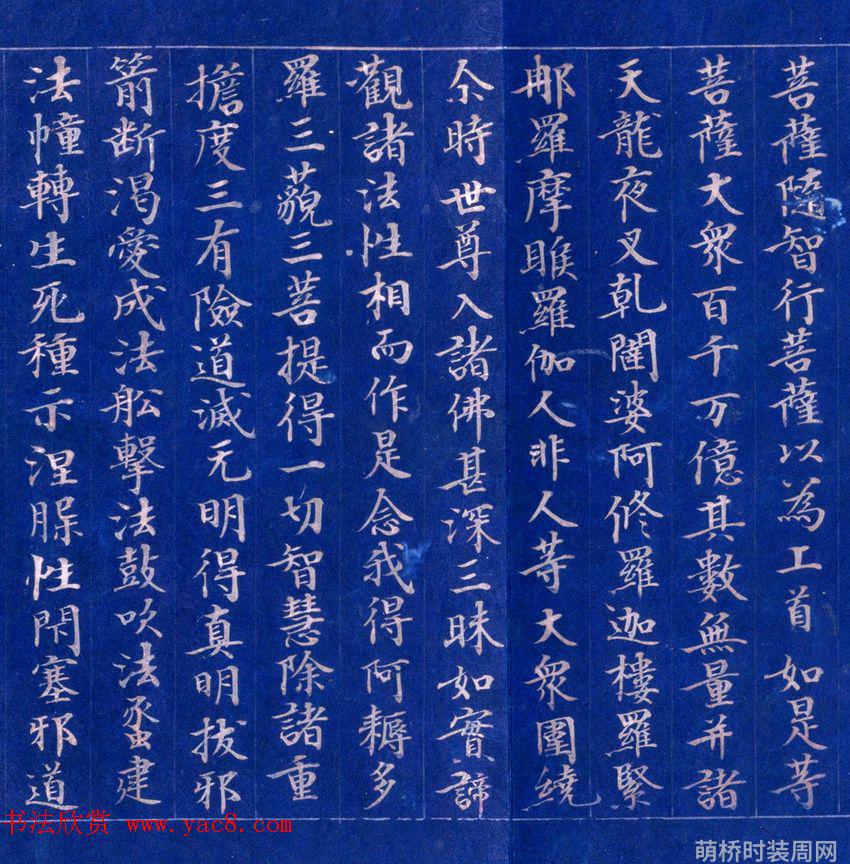 菩薩隨智行菩薩以為上首如是等
菩薩大衆百千万億其數無量并諸
天龍夜叉乹闥婆阿修羅迦樓羅緊
那羅摩睺羅伽人非人等大衆圍繞
尒時世尊入諸佛甚深三昧如實諦
觀諸法性相而作是念我得阿耨多
羅三藐三菩提得一切智慧除諸重
擔度三有險道滅无明得真明拔邪
箭断渴愛成法舩擊法鼓吹法蠡建
法幢轉生死種示涅槃性閇塞邪道
书法欣赏 www.yac8.com
萌桥时装周网